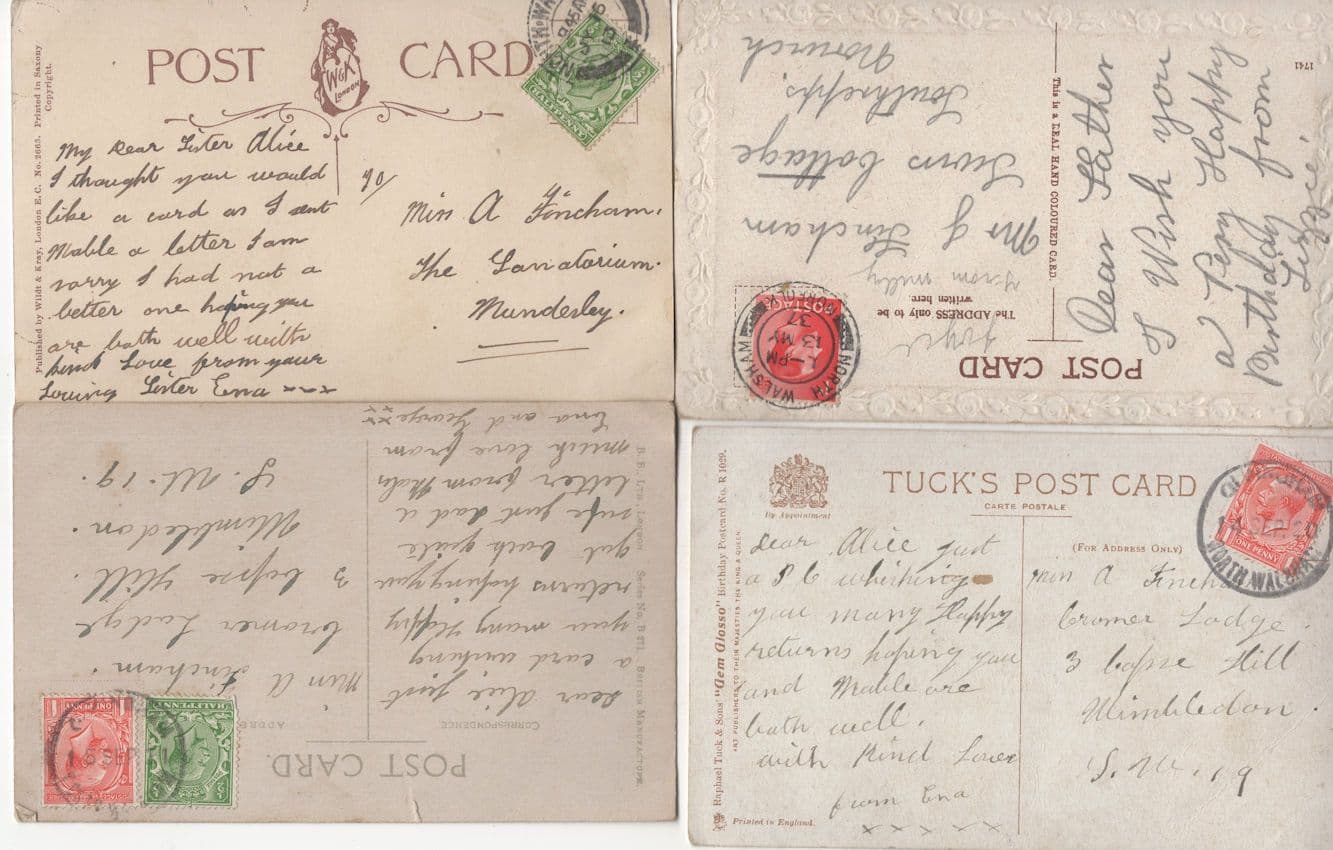 POST CARD
W&K
LONDON
Published by Wildt & Kray, London E.C. No. 2663. Printed in Saxony
Copyright.
HALFPENNY
My Dear Sister Alice
I thought you would
like a card as I sent
Mable a letter I am
sorry I had not a
better one hoping you
are both well with
kind Love from your
Loving Sister Ena xxx
Miss A Fincham.
The Sanatorium.
Mundesley.
POST CARD
The ADDRESS only to be
written here.
This is a REAL HAND COLOURED CARD.
1741
POSTAGE
NORTH WALSHAM
NORFOLK
PM
13 MY
37
from milly
Mr G Fincham
Ferns Cottage
Southrepps
Norwich
Dear Father
I Wish you
a Very Happy
Birthday from
Lizzie
POST CARD.
CORRESPONDENCE
B. B., LTD., LONDON Series No. B 271. BRITISH MANUFACTURE.
ONE PENNY
HALFPENNY
Dear Alice just
a card wishing
you many Happy
returns hoping you
got back quite
safe just had a
letter from Mable
much love from
Ena and George xx
Miss A
Fincham.
Cromer Lodge
3 Copse Hill.
Wimbledon.
S. W. 19.
TUCK'S POST CARD
CARTE POSTALE
By Appointment
(FOR ADDRESS ONLY)
Raphael Tuck & Sons' "Gem Glosso" Birthday Postcard No. R 1029.
ART PUBLISHERS TO THEIR MAJESTIES THE KING & QUEEN
Printed in England.
ONE PENNY
SEP
NORTH WALSHAM
Dear Alice just
a P C whishing
you many Happy
returns hoping you
and Mable are
both well.
with Kind Love
from Ena
x x x x x
Miss A
Cromer Lodge.
3 Copse Hill
Wimbledon.
S. W. 19